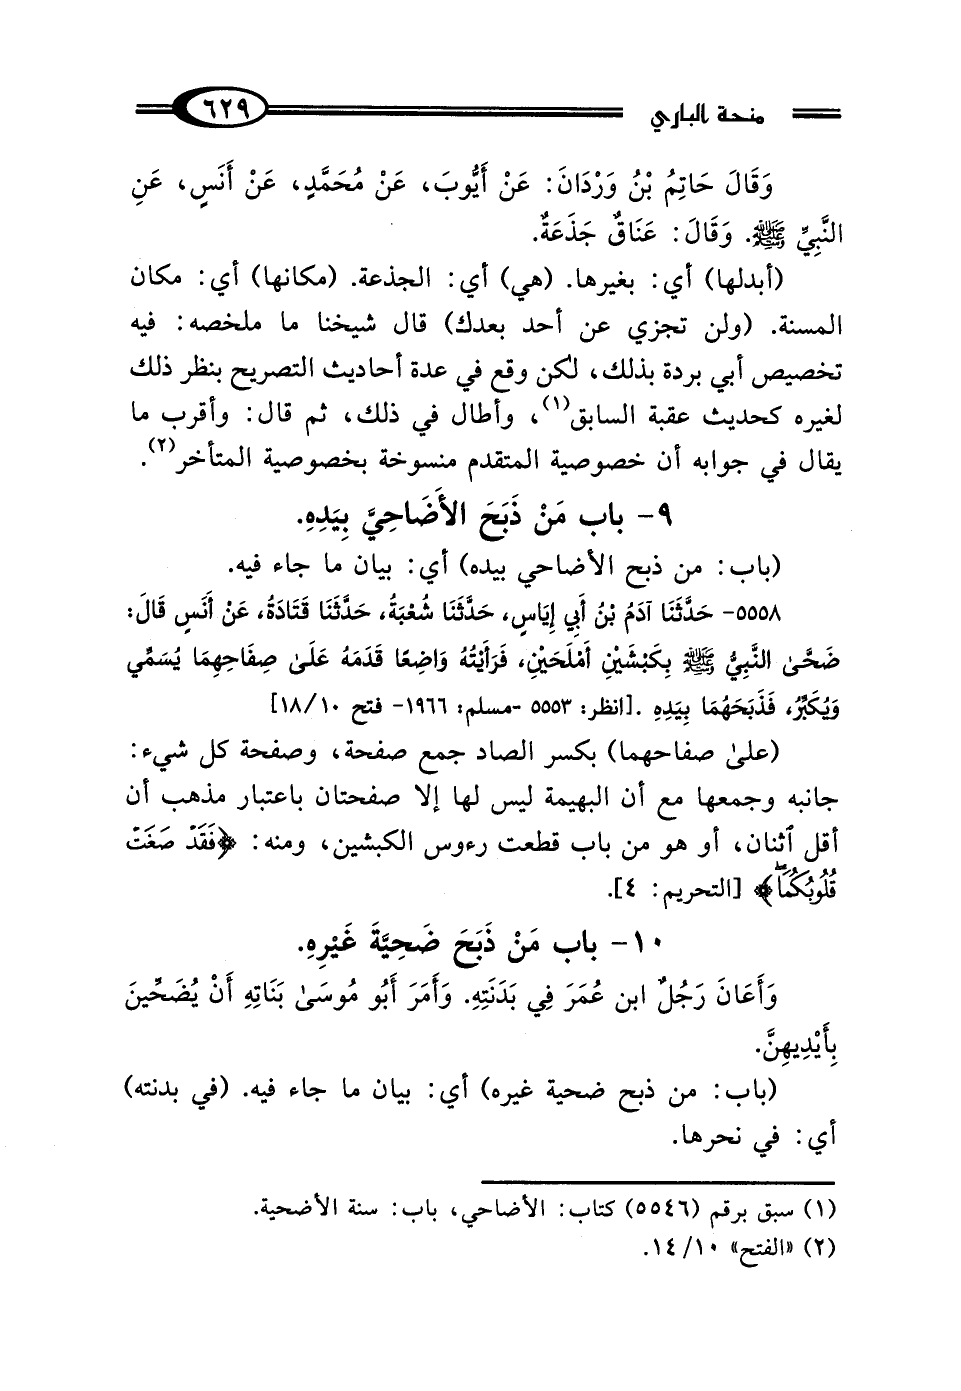 منحة الباري ٦٢٩
وَقَالَ حَاتِمُ بْنُ وَرْدَانَ: عَنْ أَيُّوبَ، عَنْ مُحَمَّدٍ، عَنْ أَنَسٍ، عَنِ
النَّبِيِّ ﷺ. وَقَالَ: عَنَاقٌ جَذَعَةٌ.
(أبدلها) أي: بغيرها. (هي) أي: الجذعة. (مكانها) أي: مكان
المسنة. (ولن تجزي عن أحد بعدك) قال شيخنا ما ملخصه: فيه
تخصيص أبي بردة بذلك، لكن وقع في عدة أحاديث التصريح بنظر ذلك
لغيره كحديث عقبة السابق(١)، وأطال في ذلك، ثم قال: وأقرب ما
يقال في جوابه أن خصوصية المتقدم منسوخة بخصوصية المتأخر(٢).
٩- باب مَنْ ذَبَحَ الأَضَاحِيَّ بِيَدِهِ.
(باب: من ذبح الأضاحي بيده) أي: بيان ما جاء فيه.
٥٥٥٨- حَدَّثَنَا آدَمُ بْنُ أَبِي إِيَاسٍ، حَدَّثَنَا شُعْبَةُ، حَدَّثَنَا قَتَادَةُ، عَنْ أَنَسٍ قَالَ:
ضَحَّىٰ النَّبِيُّ ﷺ بِكَبْشَيْنِ أَمْلَحَيْنِ، فَرَأَيْتُهُ وَاضِعًا قَدَمَهُ عَلَىٰ صِفَاحِهِمَا يُسَمِّي
وَيُكَبِّرُ، فَذَبَحَهُمَا بِيَدِهِ .[انظر: ٥٥٥٣ -مسلم: ١٩٦٦- فتح ١٨/١٠]
(علىٰ صفاحهما) بكسر الصاد جمع صفحة، وصفحة كل شيء:
جانبه وجمعها مع أن البهيمة ليس لها إلا صفحتان باعتبار مذهب أن
أقل ٱثنان، أو هو من باب قطعت رءوس الكبشين، ومنه: ﴿فَقَدْ صَغَتْ
قُلُوبُكُمَاۖ﴾ [التحريم: ٤].
١٠- باب مَنْ ذَبَحَ ضَحِيَّةَ غَيْرِهِ.
وَأَعَانَ رَجُلٌ ابن عُمَرَ فِي بَدَنَتِهِ. وَأَمَرَ أَبُو مُوسَىٰ بَنَاتِهِ أَنْ يُضَحِّينَ
بِأَيْدِيهِنَّ.
(باب: من ذبح ضحية غيره) أي: بيان ما جاء فيه. (في بدنته)
أي: في نحرها.
(١) سبق برقم (٥٥٤٦) كتاب: الأضاحي، باب: سنة الأضحية.
(٢) «الفتح» ١٤/١٠.